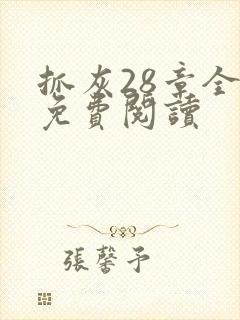 抓灰28章全
免費閱讀
張馨予